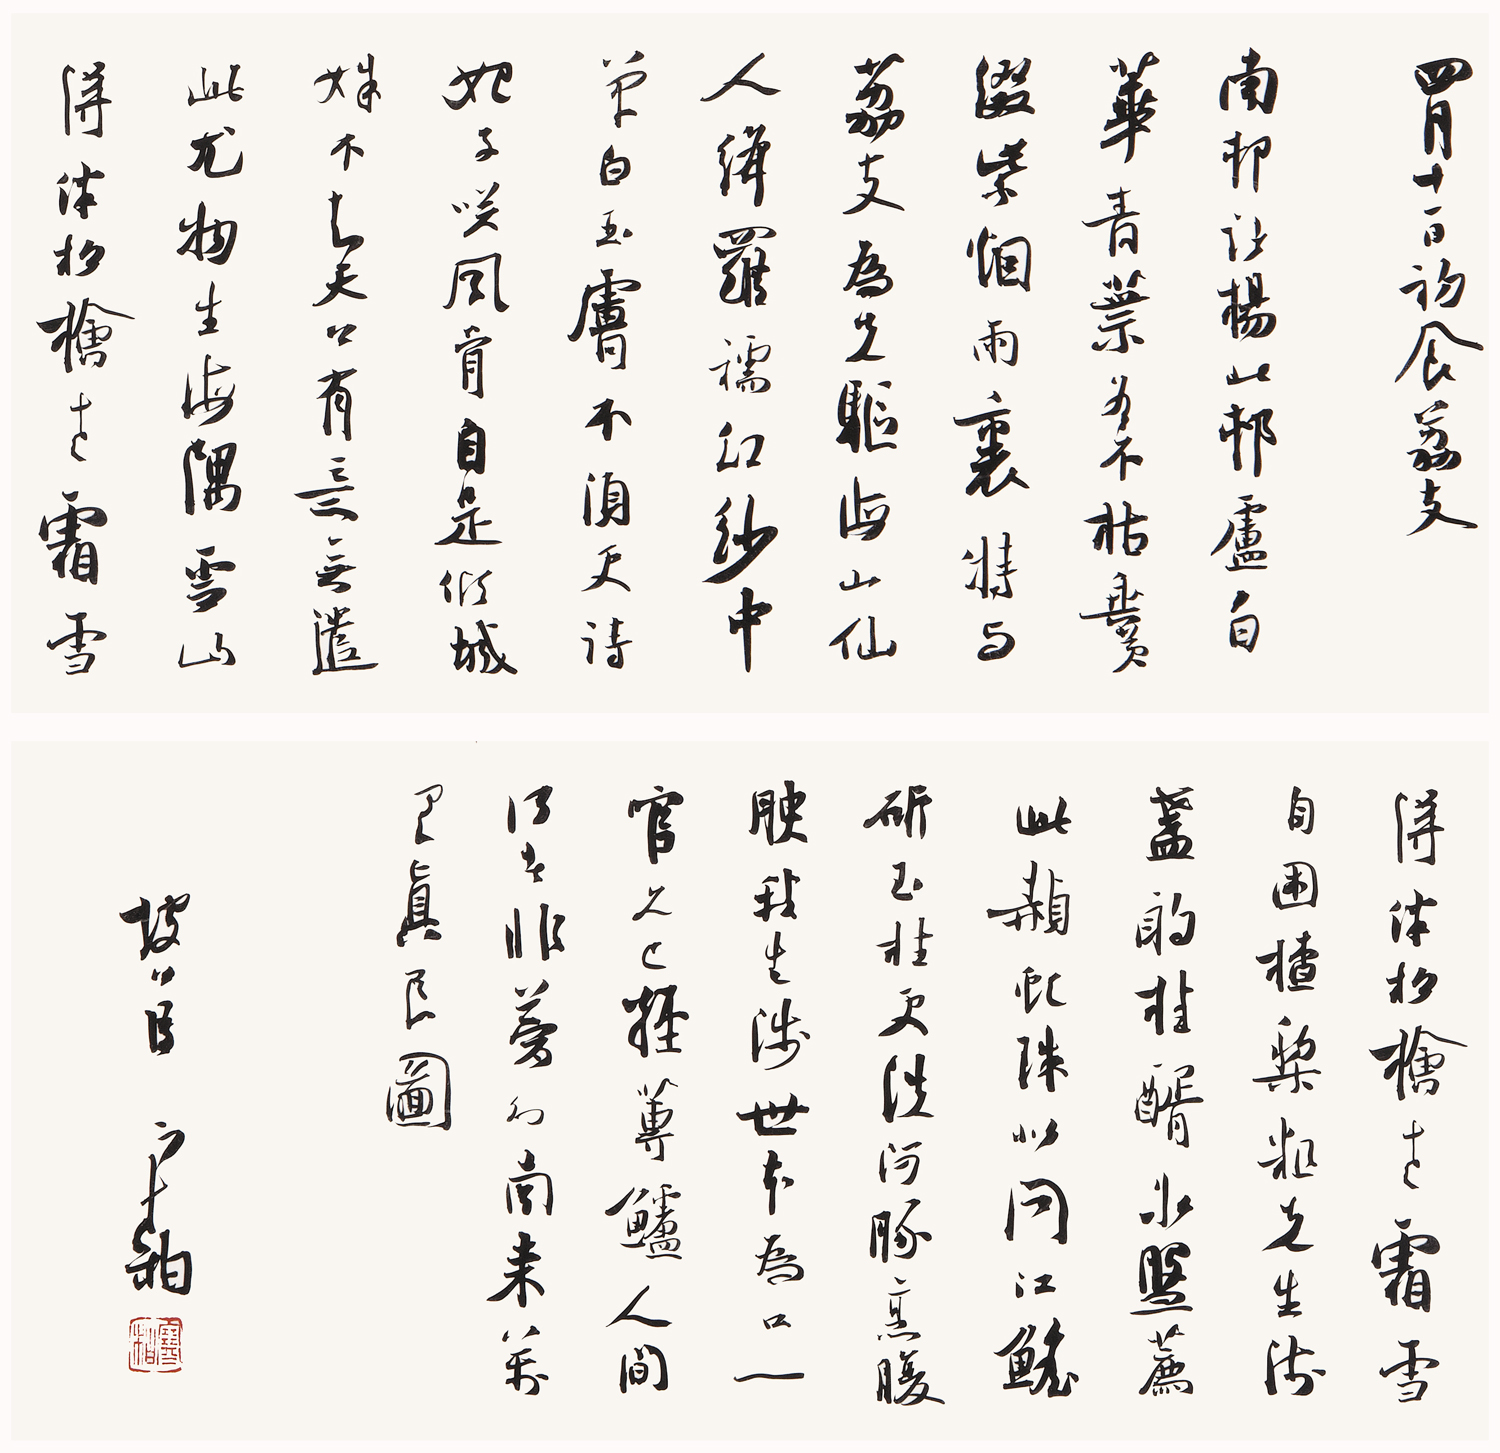 四月十一日初食荔支
南邨諸楊北邨盧白
華青葉冬不枯垂黃
綴紫烟雨裏特与
荔支為先驅海山仙
人絳羅襦紅紗中
單白玉膚不須更待
妃子笑風骨自是傾城
姝不知天公有意無遣
此尤物生海隅雲山
得伴松檜老霜雪
得伴松檜老霜雪
自困樝梨粗先生洗
盞酌桂醑冰盤薦
此赬虬珠似聞江鰩
斫玉柱更洗河豚烹腹
腴我生涉世本為口一
官久已輕蓴鱸人間
何者非夢幻南來萬
里真良圖
坡公